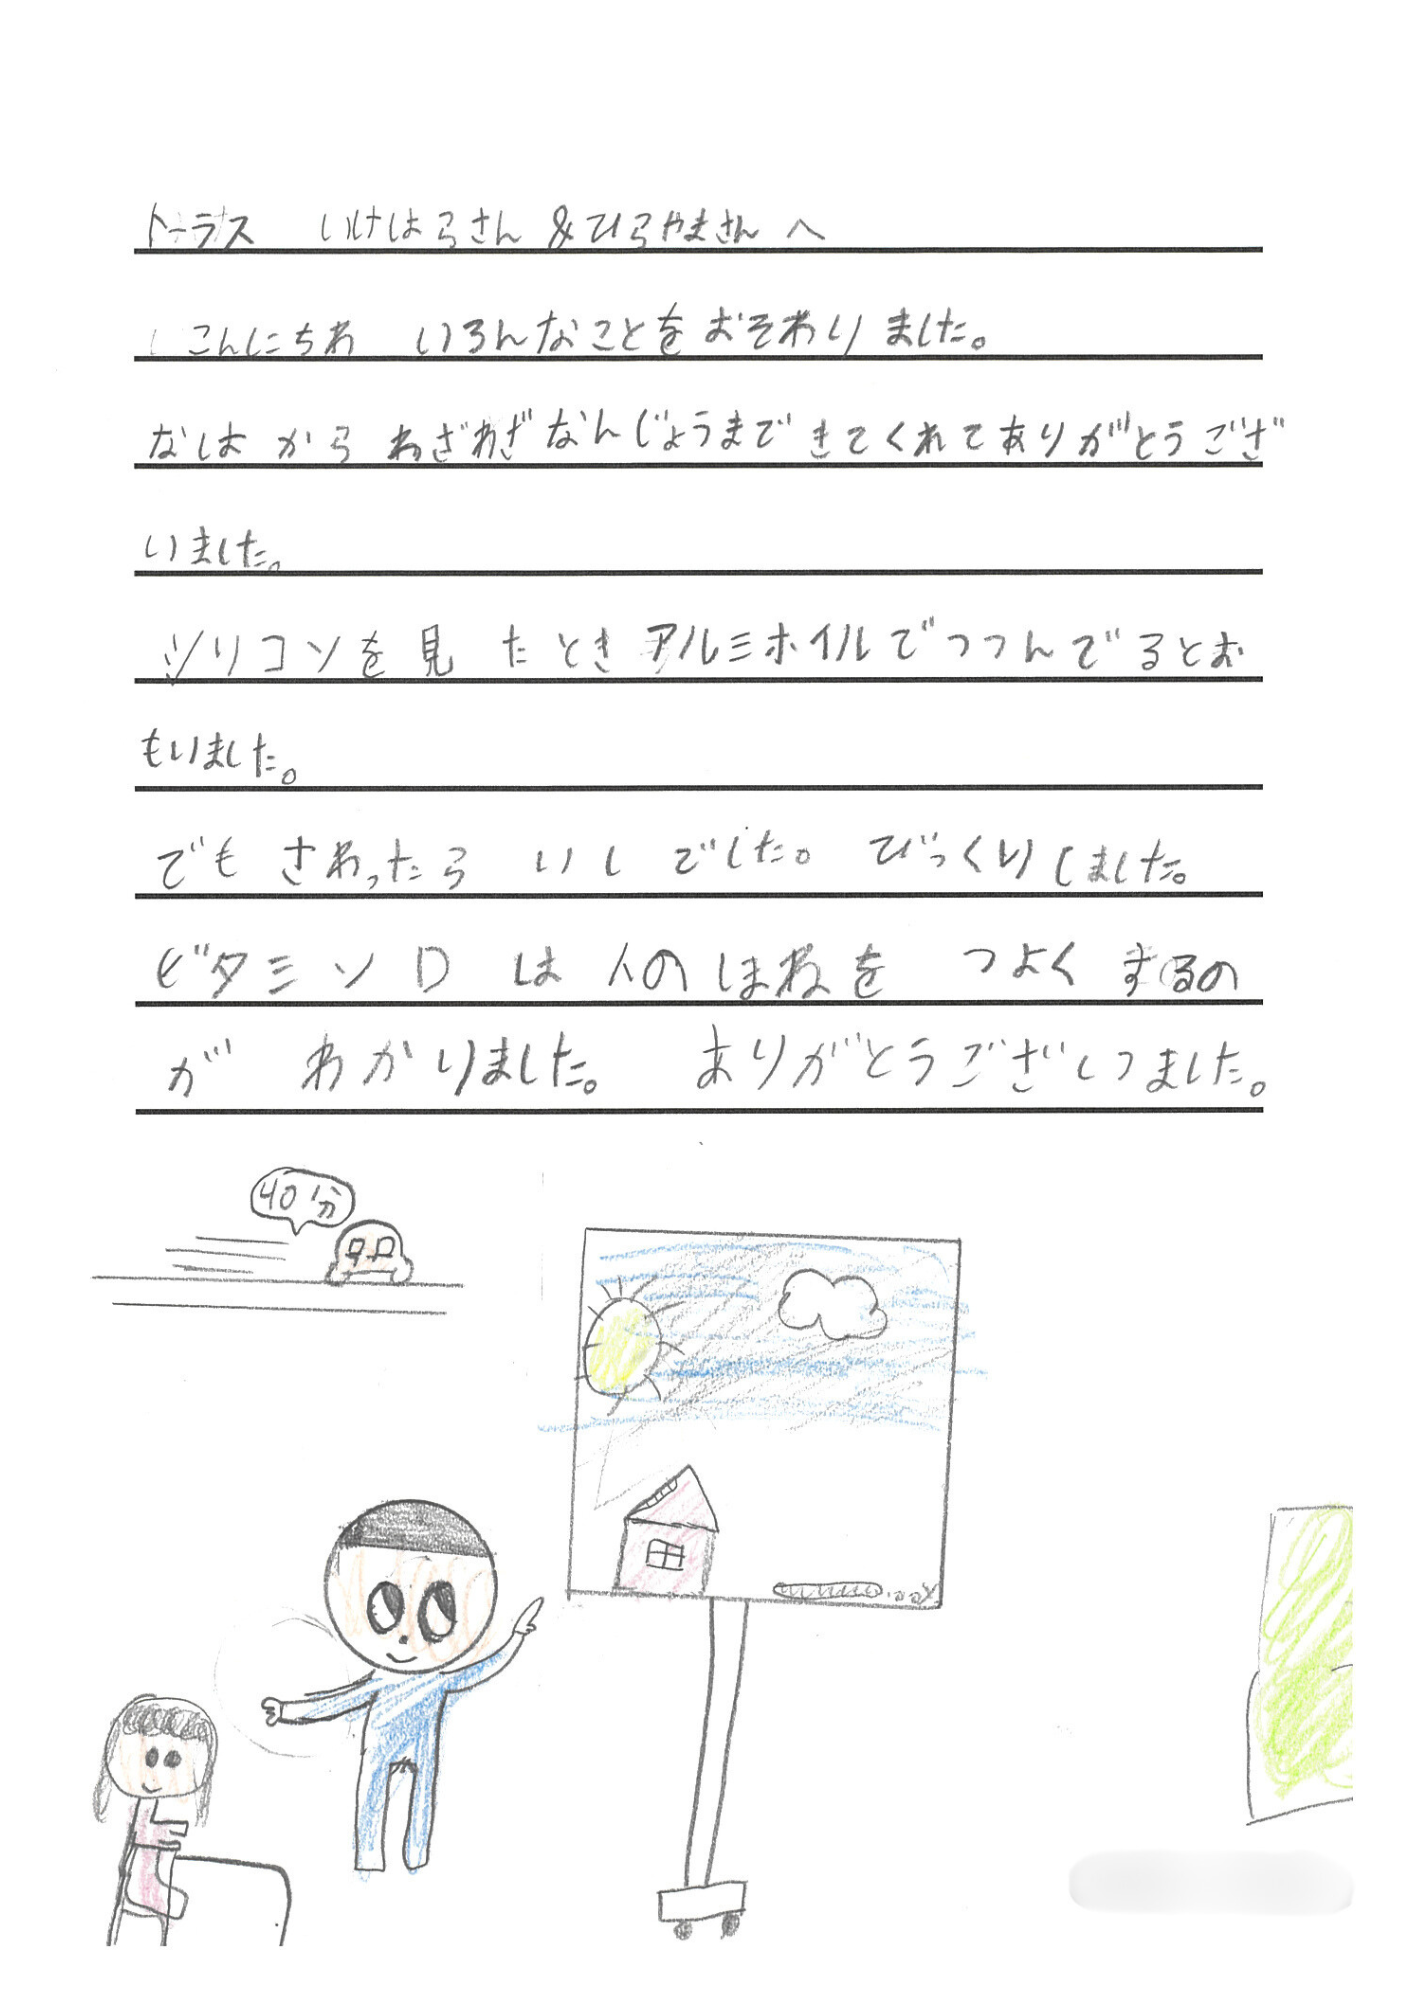 トーラス いけはらさん &ひらやまさんへ
こんにちわ いろんなことをおそわりました。
なはからわざわざなんじょうまできてくれてありがとうござ
いました。
シリコンを見たときアルミホイルでつつんでるとお
もいました。
でもさわったらいしでした。びっくりしました。
ビタミンDは人のほねをつよくするの
がわかりました。ありがとうございました。
40分